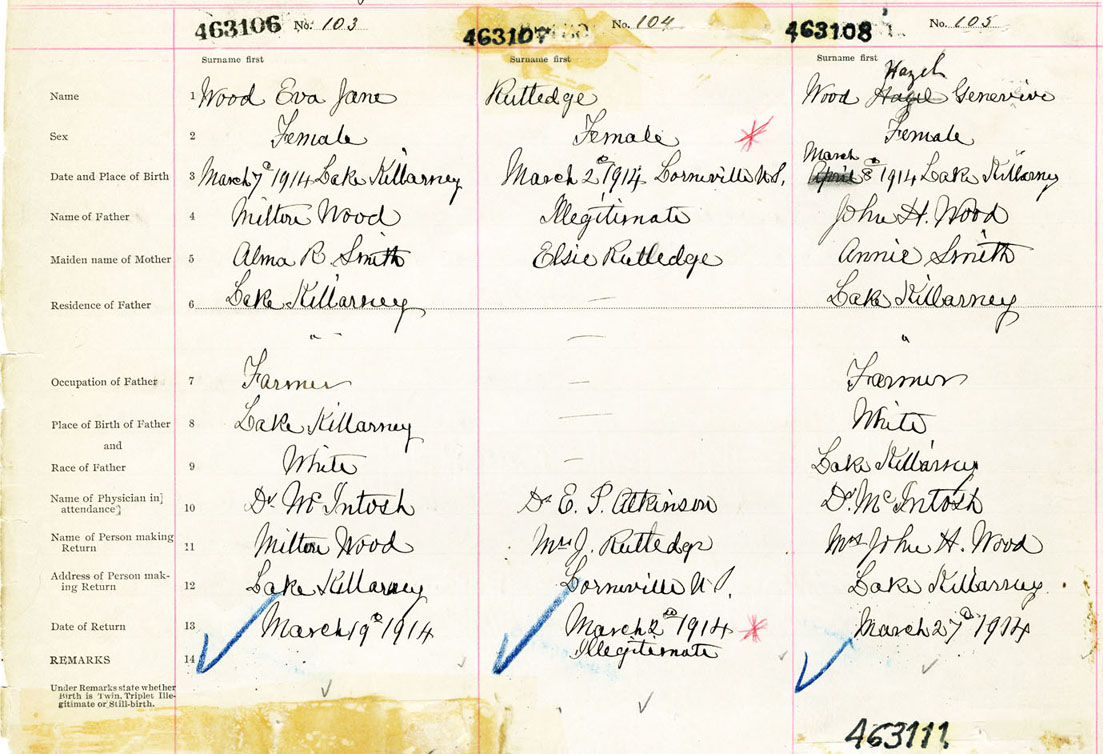 463106 No. 103 463107 No. 104 463108 No. 105
Surname first Surname first Surname first
Hazel
Name 1 Wood Eva Jane Rutledge Wood Hazel Genevive
Sex 2 Female Female Female
March
Date and Place of Birth 3 March 7th 1914 Lake Killarney March 2nd 1914 Lorneville N.S. April 8th 1914 Lake Killarney
Name of Father 4 Milton Wood Illegitimate John H. Wood
Maiden name of Mother 5 Alma R Smith Elsie Rutledge Annie Smith
Residence of Father 6 Lake Killarney — Lake Killarney
" — "
Occupation of Father 7 Farmer — Farmer
Place of Birth of Father 8 Lake Killarney — White
and
Race of Father 9 White — Lake Killarney
Name of Physician in
attendance 10 Dr McIntosh Dr E. P. Atkinson Dr McIntosh
Name of Person making
Return 11 Milton Wood Mrs J. Rutledge Mrs John H. Wood
Address of Person mak-
ing Return 12 Lake Killarney Lorneville N.S. Lake Killarney
Date of Return 13 March 19th 1914 March 2nd 1914 March 27th 1914
REMARKS 14 Illegitimate
Under Remarks state whether
Birth is Twin, Triplet Ille-
gitimate or Still-birth.
463111